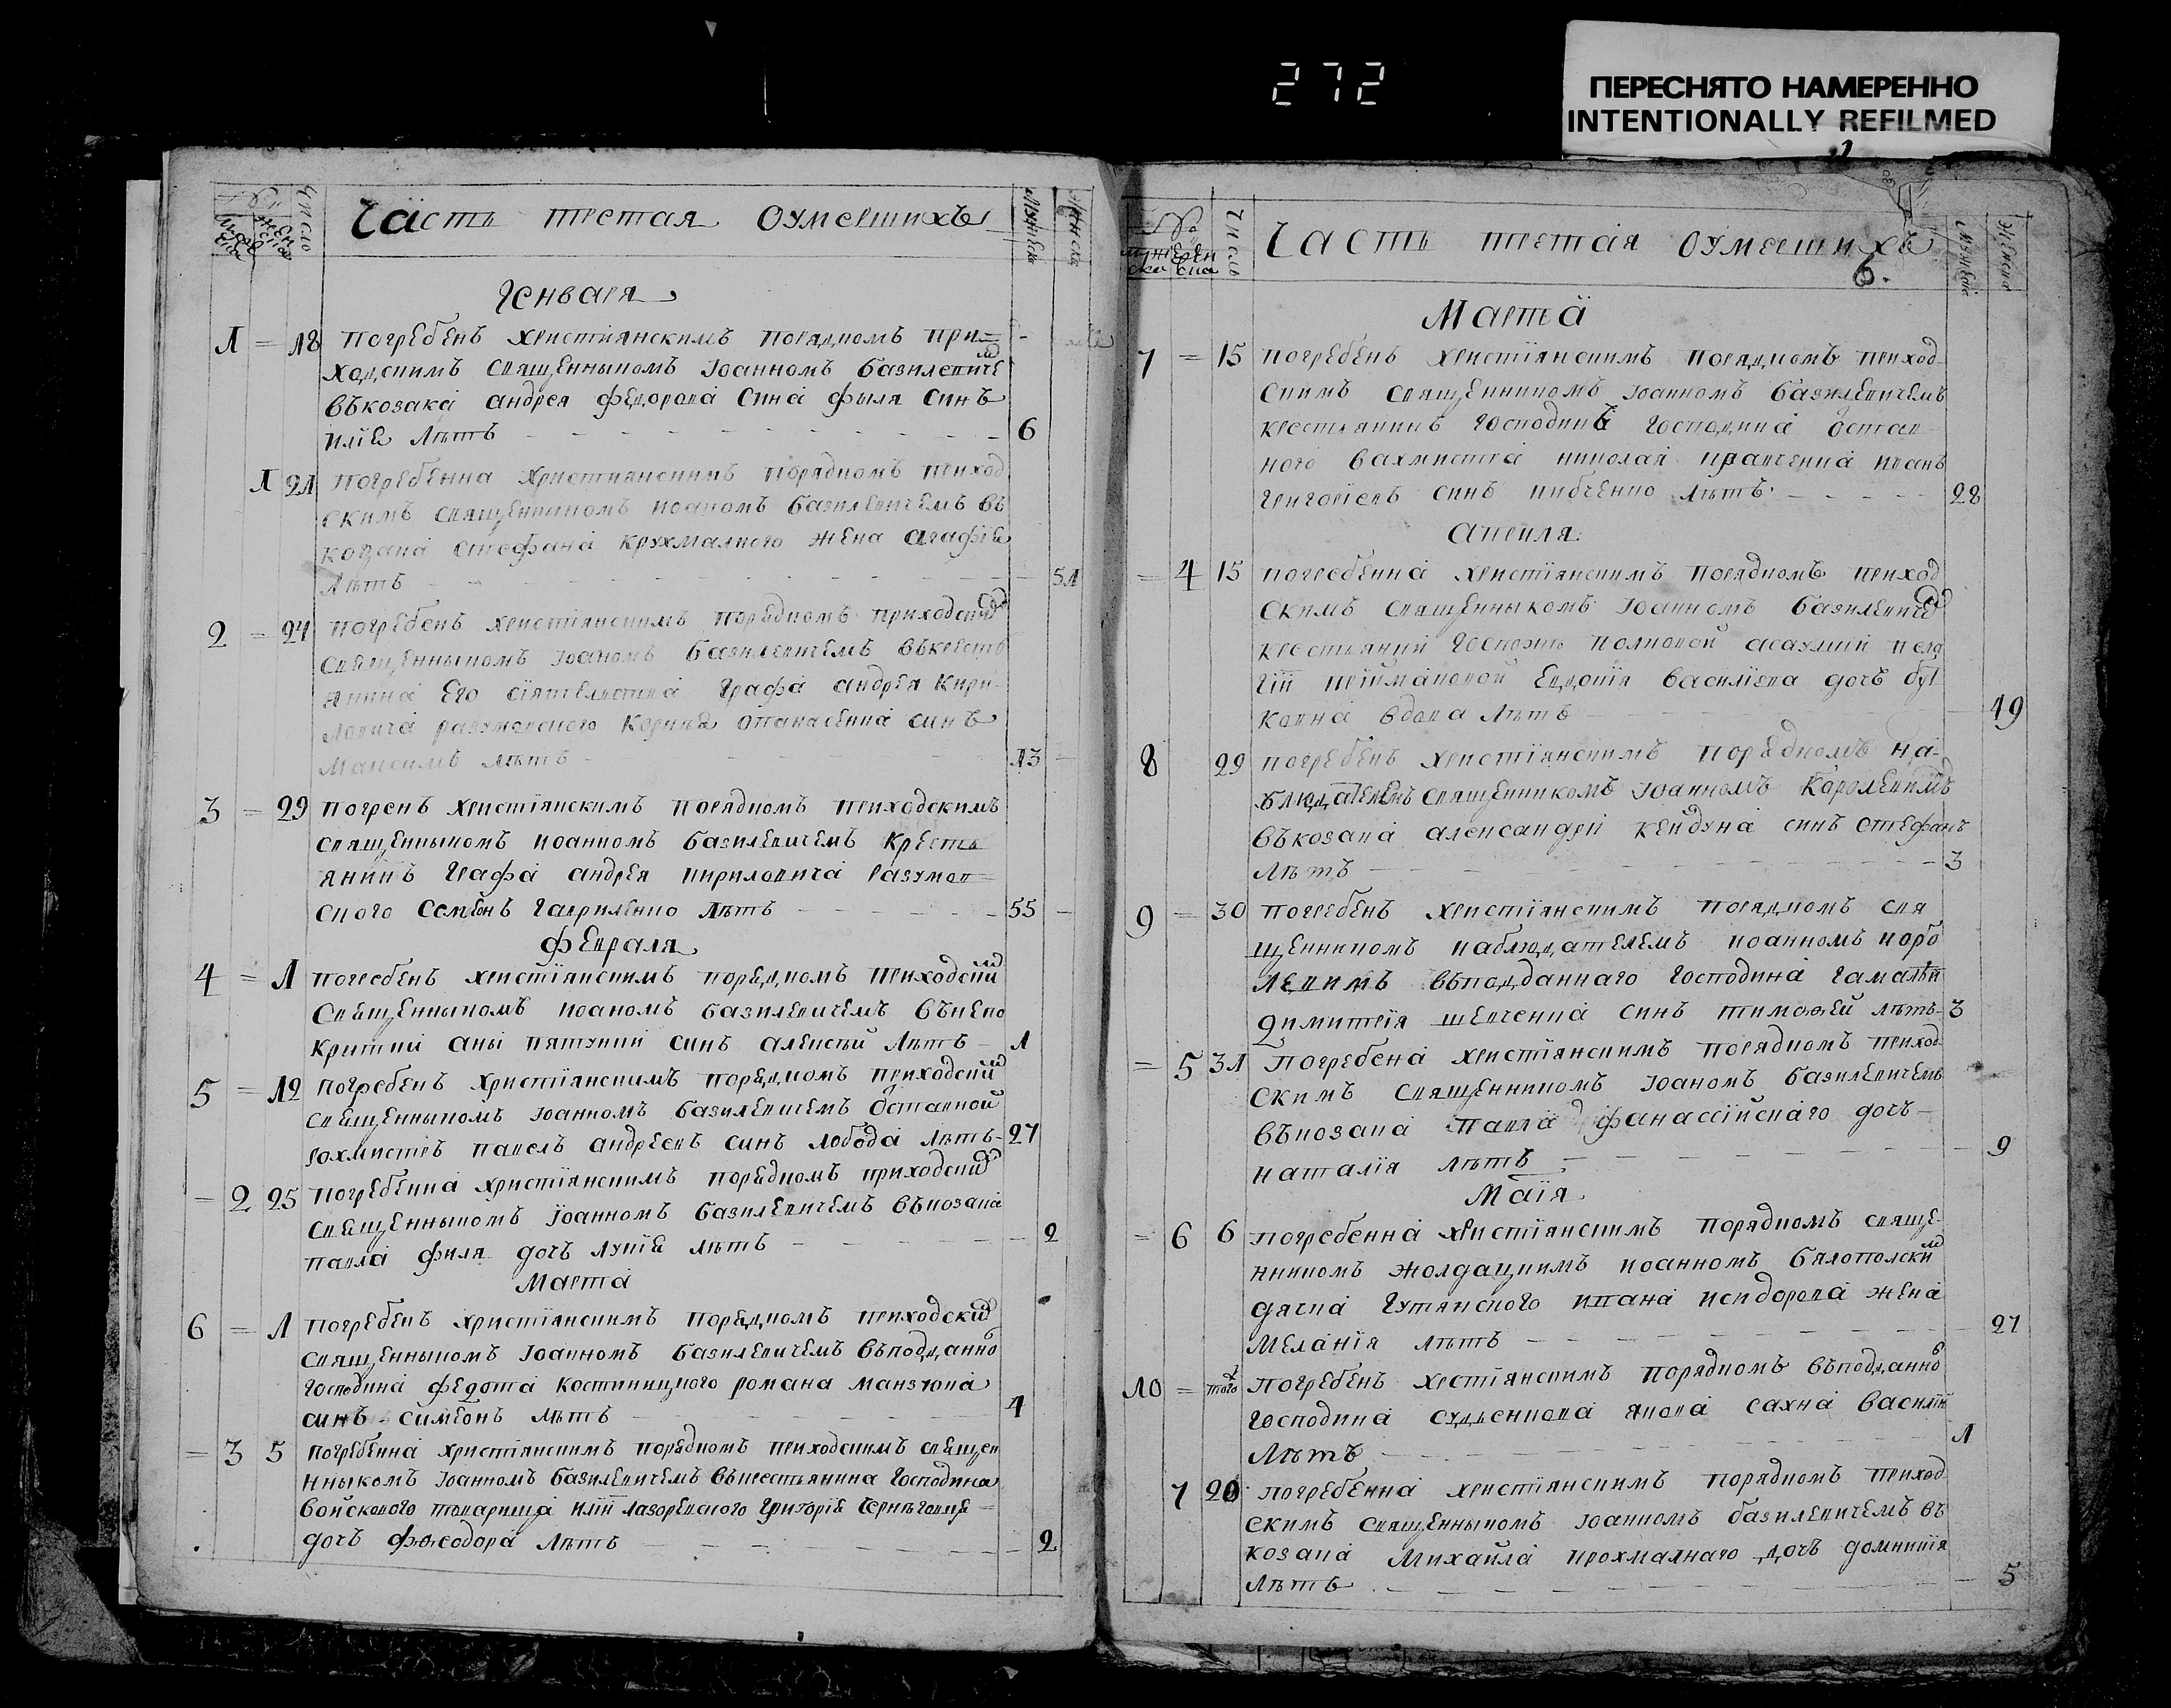 272
ПЕРЕСНЯТО НАМЕРЕННО
INTENTIONALLY REFILMED
Число
Часть третая оумершихъ
Мужеска
Женска
Генваря
1 = 18 Погребенъ христіянскимъ порядкомъ при=
ходскимъ священныкомъ Іоанномъ базилевиче
въ козака андрея федорова сина фыля синъ
илія лѣтъ 6
1 21 Погребенна християнскимъ порядкомъ приход
скимъ священникомъ иоаномъ базилевичемъ въ
козака стефана крухмалного жена агафія
лѣтъ 51
2 = 24 погребенъ христіянскимъ порядкомъ приходским
священныкомъ Іоаномъ базилевичемъ въ кресть
янина его сіятелства графа андрея кири
ловича разумовского опанасенка синъ
максимъ лѣтъ 13
3 = 29 погренъ христіянскимъ порядкомъ приходскимъ
священныкомъ иоанномъ базилевичемъ кресть
янинъ графа андрея кириловича разумов=
ского семенъ гавриленко лѣтъ 55
февраля
4 = 1 погребенъ христіянскимъ порядкомъ приходским
священныкомъ иоаномъ базилевичемъ въ непо
критки синъ алексѣй лѣтъ 1
5 = 12 погребенъ христіянскимъ порядкомъ приходским
священныкомъ Іоанномъ базилевичемъ отставной
вохмистръ павелъ андреевъ синъ лобода лѣтъ 27
= 2 25 погребенна христіянскимъ порядкомъ приходским
священныкомъ Іоанномъ базилевичемъ въ козака
павла филя дочъ лукія лѣтъ 2
Марта
6 = 1 погребенъ христіянскимъ порядкомъ приходским
священныкомъ Іоанномъ базилевичемъ въ подданно
господина федота романа
синъ симеонъ лѣтъ 4
= 3 5 погребенна христіянскимъ порядкомъ приходскимъ священ
нныкомъ Іоанномъ базилевичемъ въ крестьянина господина
войскового товарища иліи лазоревского григорія
дочъ феодора лѣтъ 2
Число
Часть третая оумершихъ
6.
Мужеска
Женска
Марта
7 = 15 погребенъ христіянскимъ порядкомъ приход
скимъ священникомъ Іоанномъ базилевичемъ
крестьянинъ господина господина остав
ного вахмистра николая иванченка иванъ
григоріевъ синъ кибченко лѣтъ 28
априля
= 4 15 погребенна христіянскимъ порядкомъ приход
скимъ священныкомъ Іоанномъ базилевичем
госпожи полковой асаулши пела
гіи евдокія василіева дочъ
вдова лѣтъ 19
8 29 погребенъ христіянскимъ порядкомъ на-
блюдателемъ священникомъ Іоанномъ королевимъ
въ козака александри синъ стефанъ
лѣтъ 3
9 = 30 погребенъ христіянскимъ порядкомъ свя
щенникомъ наблюдателемъ иоанномъ коро
левимъ въ подданнаго господина гамалѣи
димитрія шевченка синъ тимофей лѣтъ 3
= 5 31 Погребена христіянскимъ порядкомъ приход
скимъ священникомъ Іоаномъ базилевичемъ
въ козака павла фанассійскаго дочъ
наталія лѣтъ 9
Маія
= 6 6 погребенна христіянскимъ порядкомъ свяще
нникомъ жолдацкимъ иоанномъ бялополски
дячка гутянского ивана исидорова жена
меланія лѣтъ 27
10 = того погребенъ хрстіянскимъ порядкомъ въ подданно
господина судьенкова якова сахна василій
лѣтъ 1
7 20 погребенна христіянскимъ порядкомъ приход
скимъ священныкомъ Іоанномъ базилевичемъ въ
козака михайла крохмалнаго дочъ домникія
лѣтъ 5